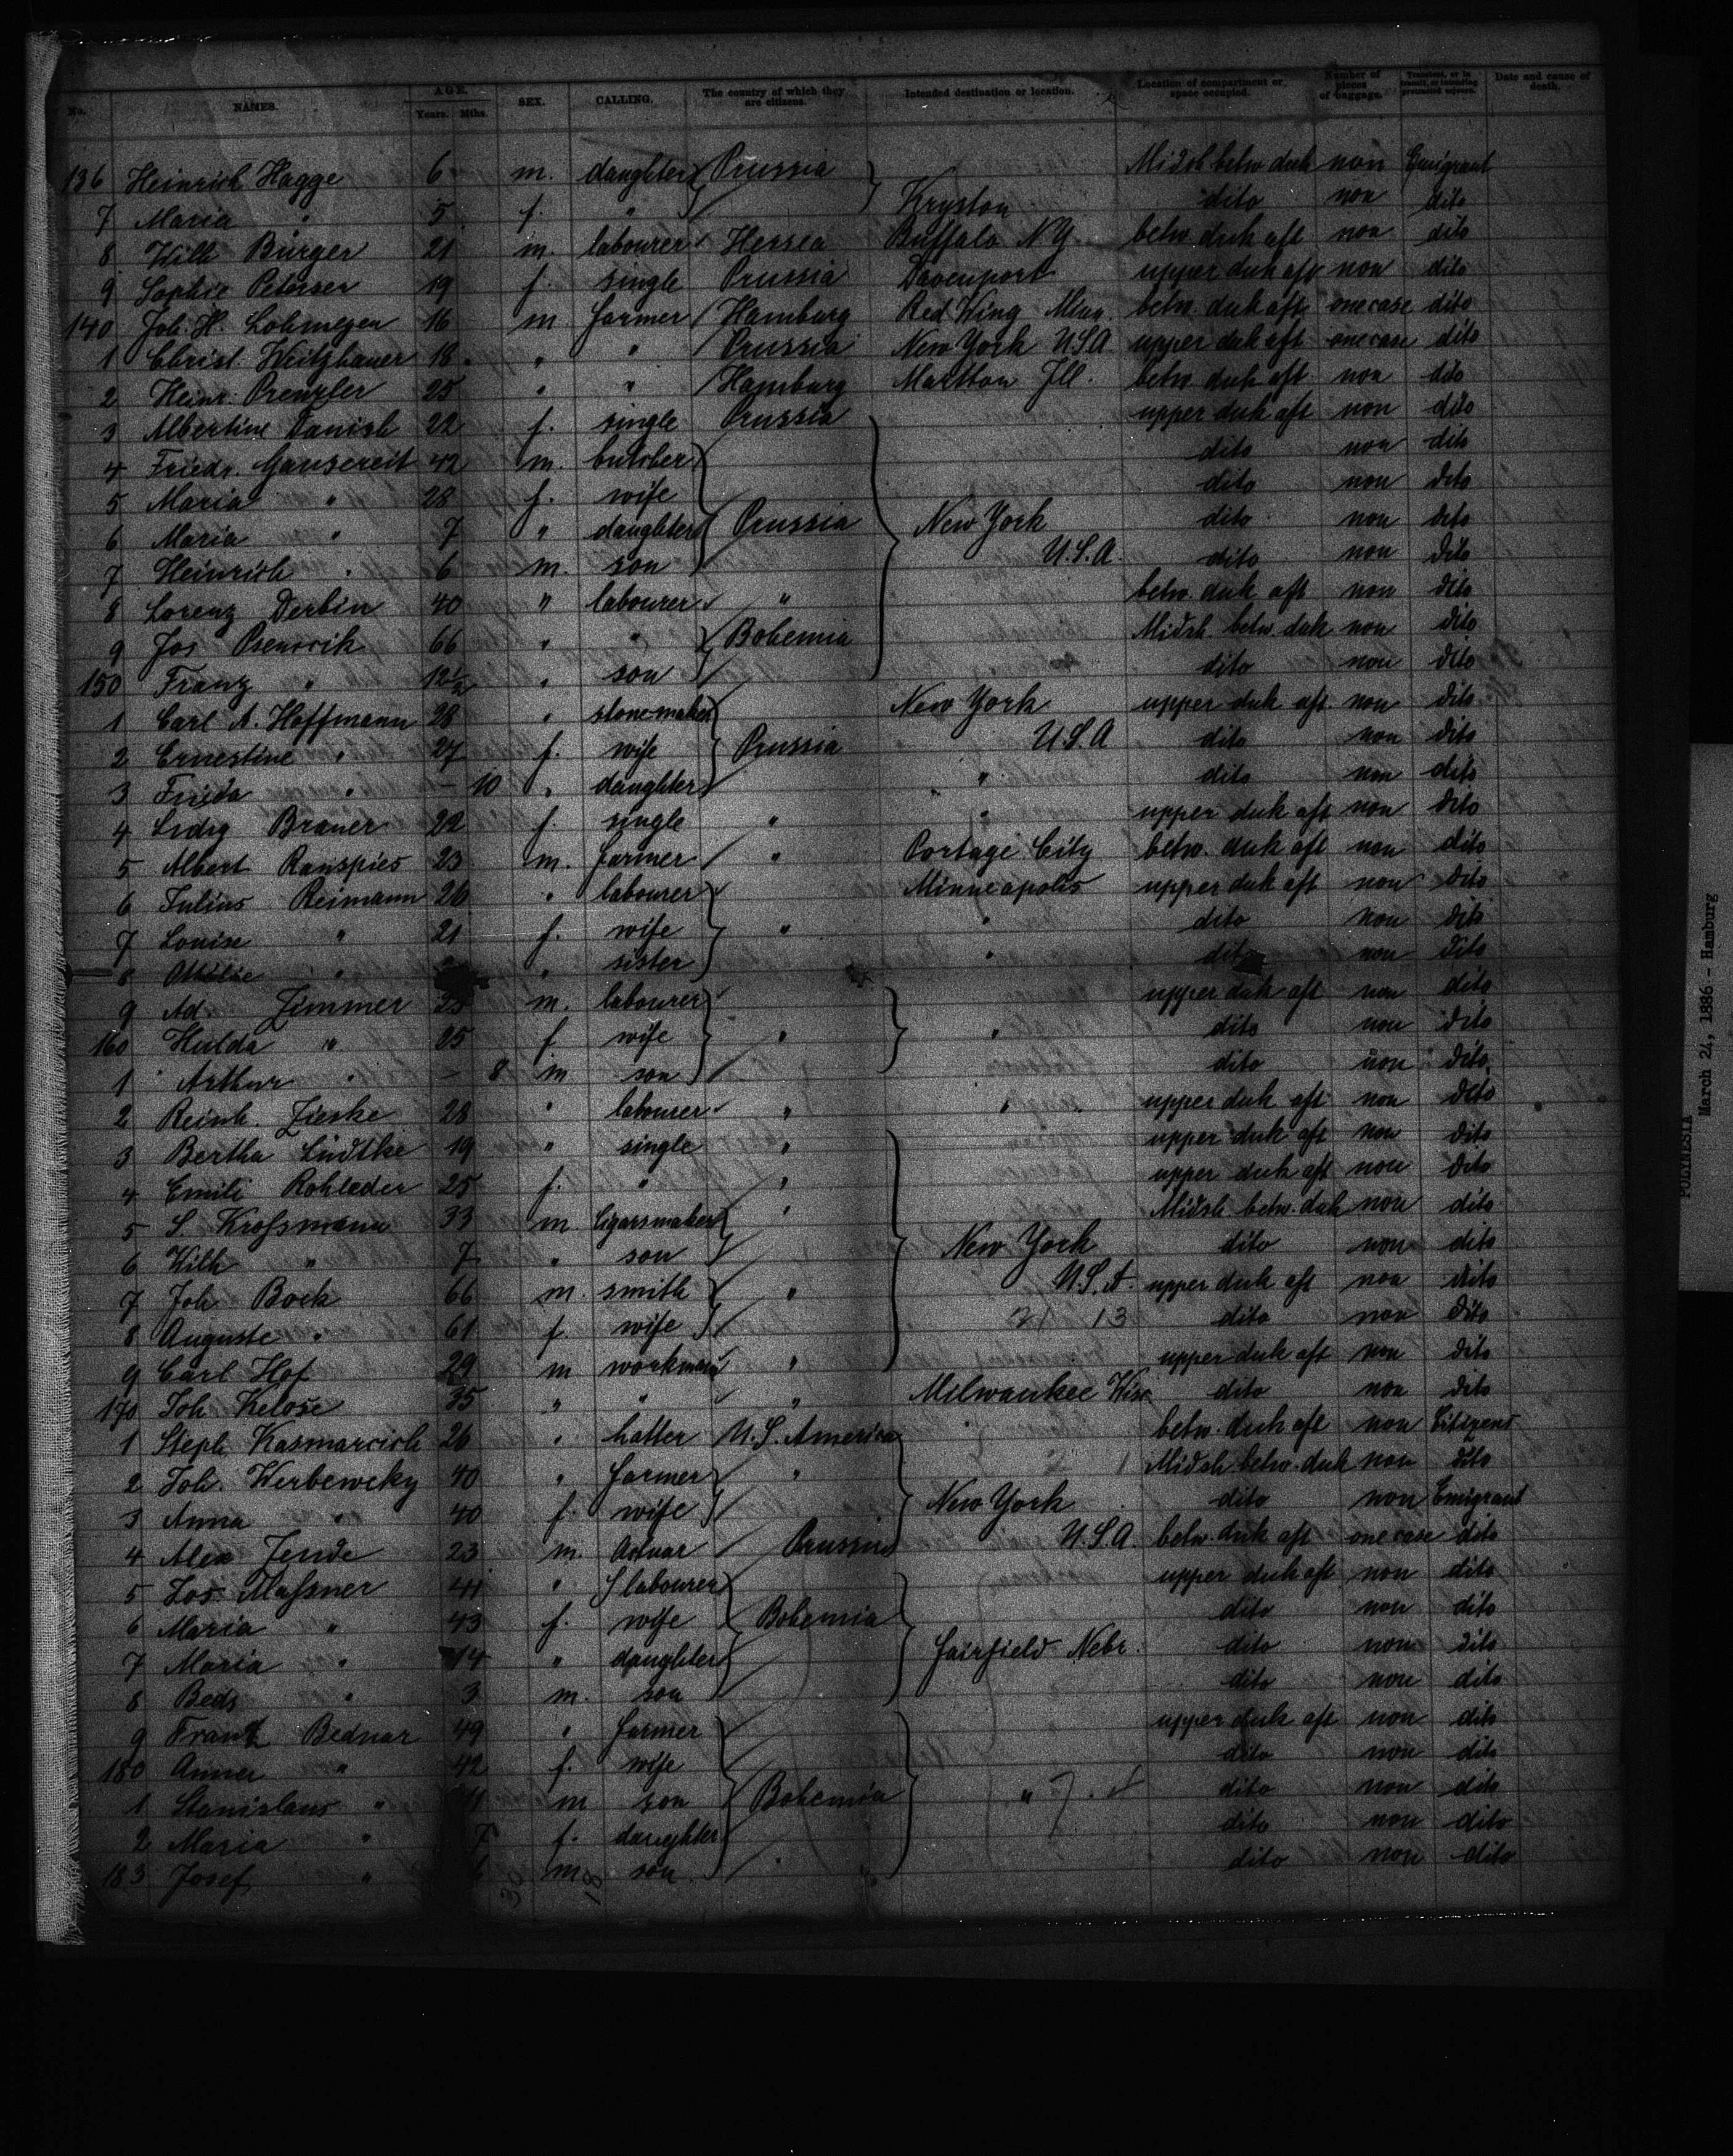 No. NAMES. AGE. Years. Mths. SEX. CALLING. The country of which they are citizens. Intended destination or location. Location of compartment or space occupied. Number of pieces of baggage. Transient, or in transit, or intending protracted sojourn. Date and cause of death.
136 Heinrich Hagge 6 m. daughter Prussia Midsh betw duk non Emigrant
7 Maria " 5 f. " Kryston dito non dito
8 Wilh Bürger 21 m. labourer Hessea Buffalo NY. betw. duk aft non dito
9 Sophie Petersen 19 f. single Prussia Davenport upper duk aft non dito
140 Joh. H. Lohmeyer 16 m farmer Hamburg Red Wing Minn. betw. duk aft one case dito
1 Christ. Weitzbauer 18 " " Prussia New York USA upper duk aft one case dito
2 Heinr. Prenzler 25 " " Hamburg Martton Ill. betw. duk aft non dito
3 Albertine Danish 22 f. single Prussia upper duk aft non dito
4 Friedr. Gausereit 42 m. butcher dito non dito
5 Maria " 28 f. wife dito non dito
6 Maria " 7 " daughter Prussia New York dito non dito
7 Heinrich " 6 m. son U.S.A. dito non dito
8 Lorenz Derbin 40 " labourer " betw. duk aft non dito
9 Jos 66 " " Bohemia Midsh. betw. duk non dito
150 Franz " 12½ " son dito non dito
1 Carl A. Hoffmann 28 " stonemaker New York upper duk aft. non dito
2 Ernestine " 27 f. wife Prussia U.S.A dito non dito
3 Frieda " – 10 " daughter " dito non dito
4 Braner 22 f. single " " upper duk aft non dito
5 Albert Ranspies 23 m. farmer " Portage City betw. duk aft non dito
6 Julius Reimann 26 " labourer Minneapolis upper duk aft non dito
7 Louise " 21 f. wife " " dito non dito
8 Ottilie " " sister " dito non dito
9 Ad Zimmer m. labourer upper duk aft non dito
160 Hulda " 25 f wife " " dito non dito
1 Arthur " – 8 m son dito non dito
2 Reinh. Zieske 28 " labourer " " upper duk aft non dito
3 Bertha Lüdtke 19 " single " upper duk aft non dito
4 Emili Rohleder 25 f. " " upper duk aft non dito
5 S. Kroſsmann 33 m. Cigarsmaker " Midsh. betw. duk non dito
6 Wilh " 7 " son New York dito non dito
7 Joh Bock 66 m. smith " U.S.A. upper duk aft non dito
8 Auguste " 61 f wife 21 13 dito non dito
9 Carl Hof 29 m workman " upper duk aft non dito
170 Joh Kelose 35 " " " Milwaukee Wisc. dito non dito
1 Steph Kasmarcich 26 " hatter U.S. America " betw. duk aft non Citizens
2 Joh. Werbewcky 40 " farmer " Midsh betw. duk non dito
3 Anna " 40 f. wife New York dito non Emigrant
4 Alex Jende 23 m. Prussia U.S.A. betw. duk aft one case dito
5 Jos. Maſsner 41 " labourer upper duk aft non dito
6 Maria " 43 f. wife Bohemia dito non dito
7 Maria " 14 " daughter fairfield Nebr. dito non dito
8 Beds " 3 m. son dito non dito
9 Franz Bednar 49 " farmer upper duk aft non dito
180 Anner " 42 f. wife dito non dito
1 Stanislaus " 11 m son Bohemia " dito non dito
2 Maria " 7 f. daughter dito non dito
183 Josef " m. son dito non dito
POLYNESIA
March 24, 1886 - Hamburg